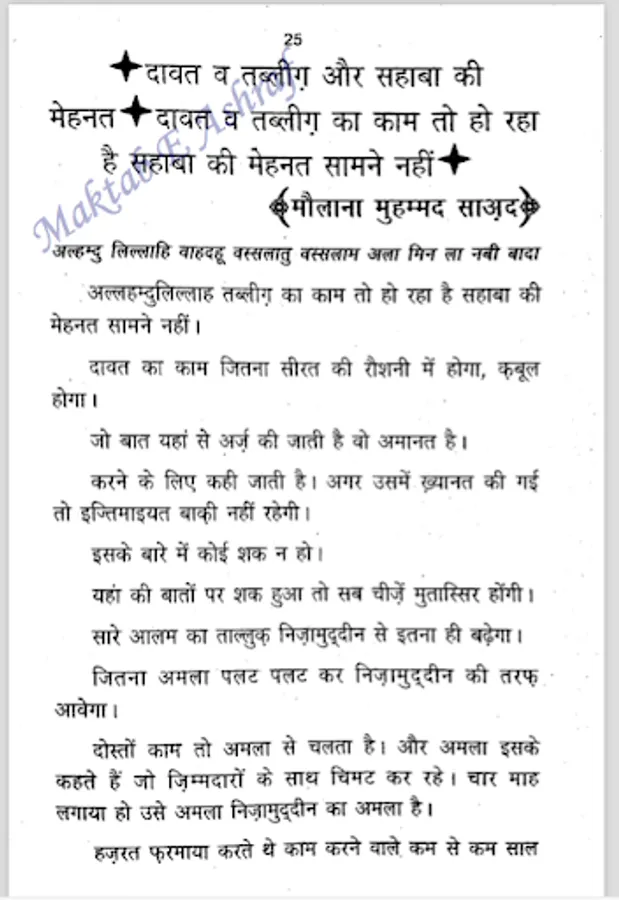 25
✦दावत व तब्लीग़ और सहाबा की
मेहनत✦दावत व तब्लीग़ का काम तो हो रहा
है सहाबा की मेहनत सामने नहीं✦
﴾मौलाना मुहम्मद साअ़द﴿
Maktab E Ashraf
अल्हम्दु लिल्लाहि वाहदहू वस्सलातु वस्सलाम अला मिन ला नबी बादा
अल्लहम्दुलिल्लाह तब्लीग़ का काम तो हो रहा है सहाबा की
मेहनत सामने नहीं।
दावत का काम जितना सीरत की रौशनी में होगा, क़बूल
होगा।
जो बात यहां से अर्ज़ की जाती है वो अमानत है।
करने के लिए कही जाती है। अगर उसमें ख़्यानत की गई
तो इज्तिमाइयत बाक़ी नहीं रहेगी।
इसके बारे में कोई शक न हो।
यहां की बातों पर शक हुआ तो सब चीज़ें मुतास्सिर होंगी।
सारे आलम का ताल्लुक़ निज़ामुद्दीन से इतना ही बढ़ेगा।
जितना अमला पलट पलट कर निज़ामुद्दीन की तरफ़
आवेगा।
दोस्तों काम तो अमला से चलता है। और अमला इसके
कहते हैं जो ज़िम्मदारों के साथ चिमट कर रहे। चार माह
लगाया हो उसे अमला निज़ामुद्दीन का अमला है।
हज़रत फ़रमाया करते थे काम करने वाले कम से कम साल